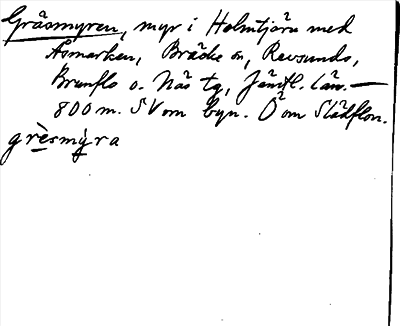 Gräsmyren, myr i Holmtjärn med
Åsmarken, Bräcke sn, Revsunds,
Brunflo o. Näs tg, Jämtl. län. —
800 m. SV om byn. Ö om Slädflon.
grèsmỳra